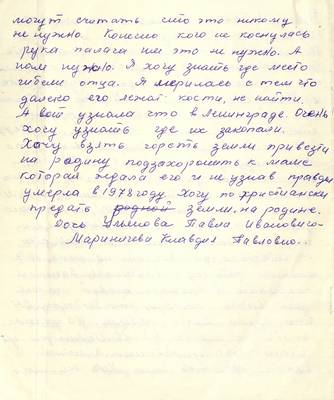 могут считать сто это никому
не нужно. Конешно кого не коснулась
рука палача им это не нужно. А
нам нужно. Я хочу знать где место
гибели отца. Я мерилась с тем что
далеко его лежат кости, не найти.
А вот узнала что в Ленинграде. Очень
хочу узнать где их закопали.
Хочу взять горсть земли привезти
на родину подзахоронить к маме
которая ждала его и не узнав правды
умерла в 1978 году. Хочу по христиански
предать родной земли, на родине.
Дочь Павла Ивановича
Клавдия Павловна..